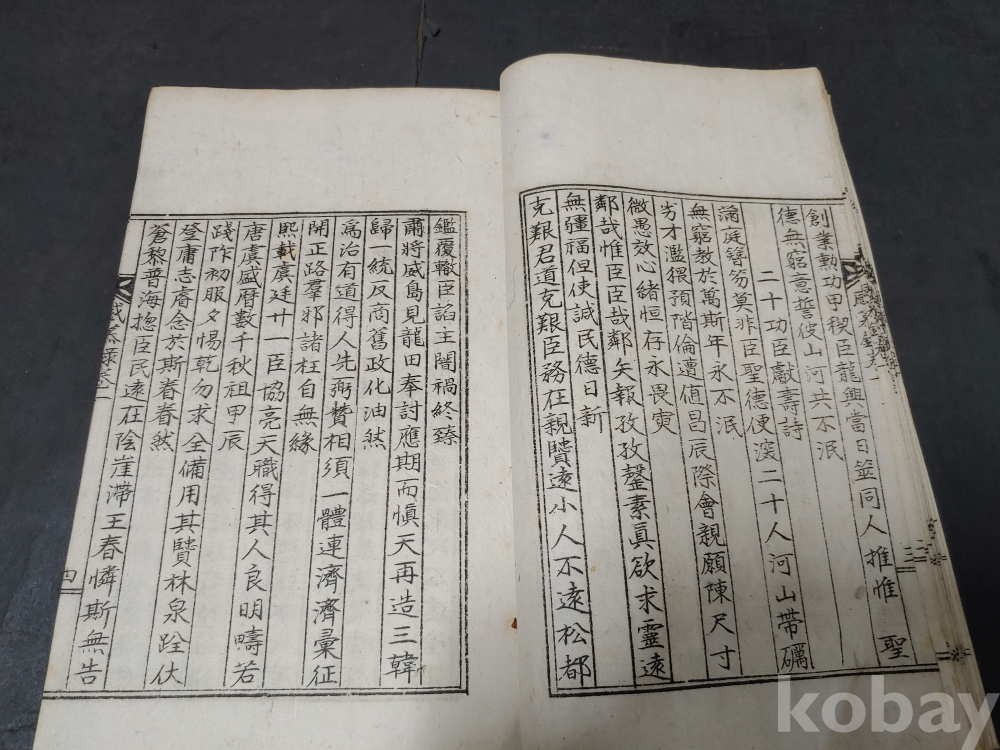 創業勲功甲稷臣龍興當日並同人推惟 聖
德無窮意誓彼山河共不泯
二十功臣獻壽詩
滿庭簪笏莫非臣聖德便深二十人河山帶礪
無窮教於萬斯年永不泯
劣才濫猥預階倫遭値昌辰際會親願陳尺寸
微愚效心緒恒存永畏寅
鄰哉惟臣臣哉鄰矢報孜孜罄素眞欲求靈遠
無疆福但使諴民德日新
克艱君道克艱臣務在親賢遠小人不遠松都
鑑覆轍臣諂主闇禍終臻
肅將威島見龍田奉討應期而愼天再造三韓
歸一統反商舊政化油然
爲治有道得人先弼贊相須一體連濟濟彙征
開正路羣邪諸枉自無緣
熙載虞廷廿一臣協亮天職得其人良明疇若
唐虞盛曆數千秋祖甲辰
踐阼初服夕惕乾勿求全備用其賢林泉跧伏
登庸志睿念於斯眷眷然
蒼黎普海揔臣民遠在陰崖滯王春憐斯無告
三
四
kobay